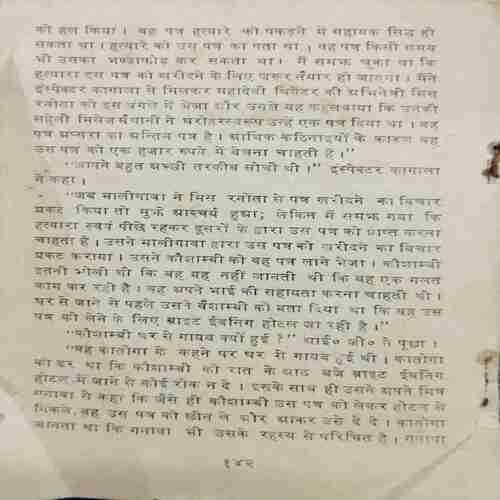 को हल किया। वह पत्र हत्यारे को पकड़ने में सहायक सिद्ध हो
सकता था। हत्यारे को उस पत्र का पता था। वह पत्र किसी समय
भी उसका भण्डाफोड़ कर सकता था। मैं समझ चुका था कि
हत्यारा इस पत्र को खरीदने के लिए जरूर तैयार हो जाएगा। मैंने
इंस्पेक्टर कागाला से मिलकर महादेवी थियेटर की अभिनेत्री मिस
रनोता को इस बंगले में भेजा और उससे यह कहलवाया कि उनकी
सहेली मिसेज सैयानी ने धरोहरस्वरूप उन्हें एक पत्र दिया था। वह
पत्र का अन्तिम पत्र है। आर्थिक कठिनाइयों के कारण वह
उस पत्र को एक हजार रुपये में बेचना चाहती है।"
"आपने बहुत अच्छी तरकीब सोची थी।" इंस्पेक्टर कागाला
ने कहा।
"जब मालीगावा ने मिस रनोता से पत्र खरीदने का विचार
प्रकट किया तो मुझे आश्चर्य हुआ; लेकिन मैं समझ गया कि
हत्यारा स्वयं पीछे रहकर दूसरों के द्वारा उस पत्र को प्राप्त करना
चाहता है। उसने मालीगावा द्वारा उस पत्र को खरीदने का विचार
प्रकट कराया। उसने कौशाम्बी को वह पत्र लाने भेजा। कौशाम्बी
इतनी भोली थी कि वह यह नहीं जानती थी कि वह एक गलत
काम कर रही है। वह अपने भाई की सहायता करना चाहती थी।
घर से जाने से पहले उसने कैशाम्बी को बता दिया था कि वह उस
पत्र को लेने के लिए ब्राइट ईवनिंग होटल जा रही है।"
"कौशाम्बी घर से गायब क्यों हुई?" आई० जी० ने पूछा।
"वह कालोगा के कहने पर घर से गायब हुई थी। कालोगा
को डर था कि कौशाम्बी को रात के आठ बजे ब्राइट ईवनिंग
होटल में जाने से कोई रोक न दे। इसके साथ ही उसने अपने मित्र
गनावा से कहा कि जैसे ही कौशाम्बी उस पत्र को लेकर होटल से
निकले, वह उस पत्र को छीन ले और आकर उसे दे दे। कालोगा
जानता था कि गनावा भी उसके रहस्य से परिचित है। गनावा
१४२